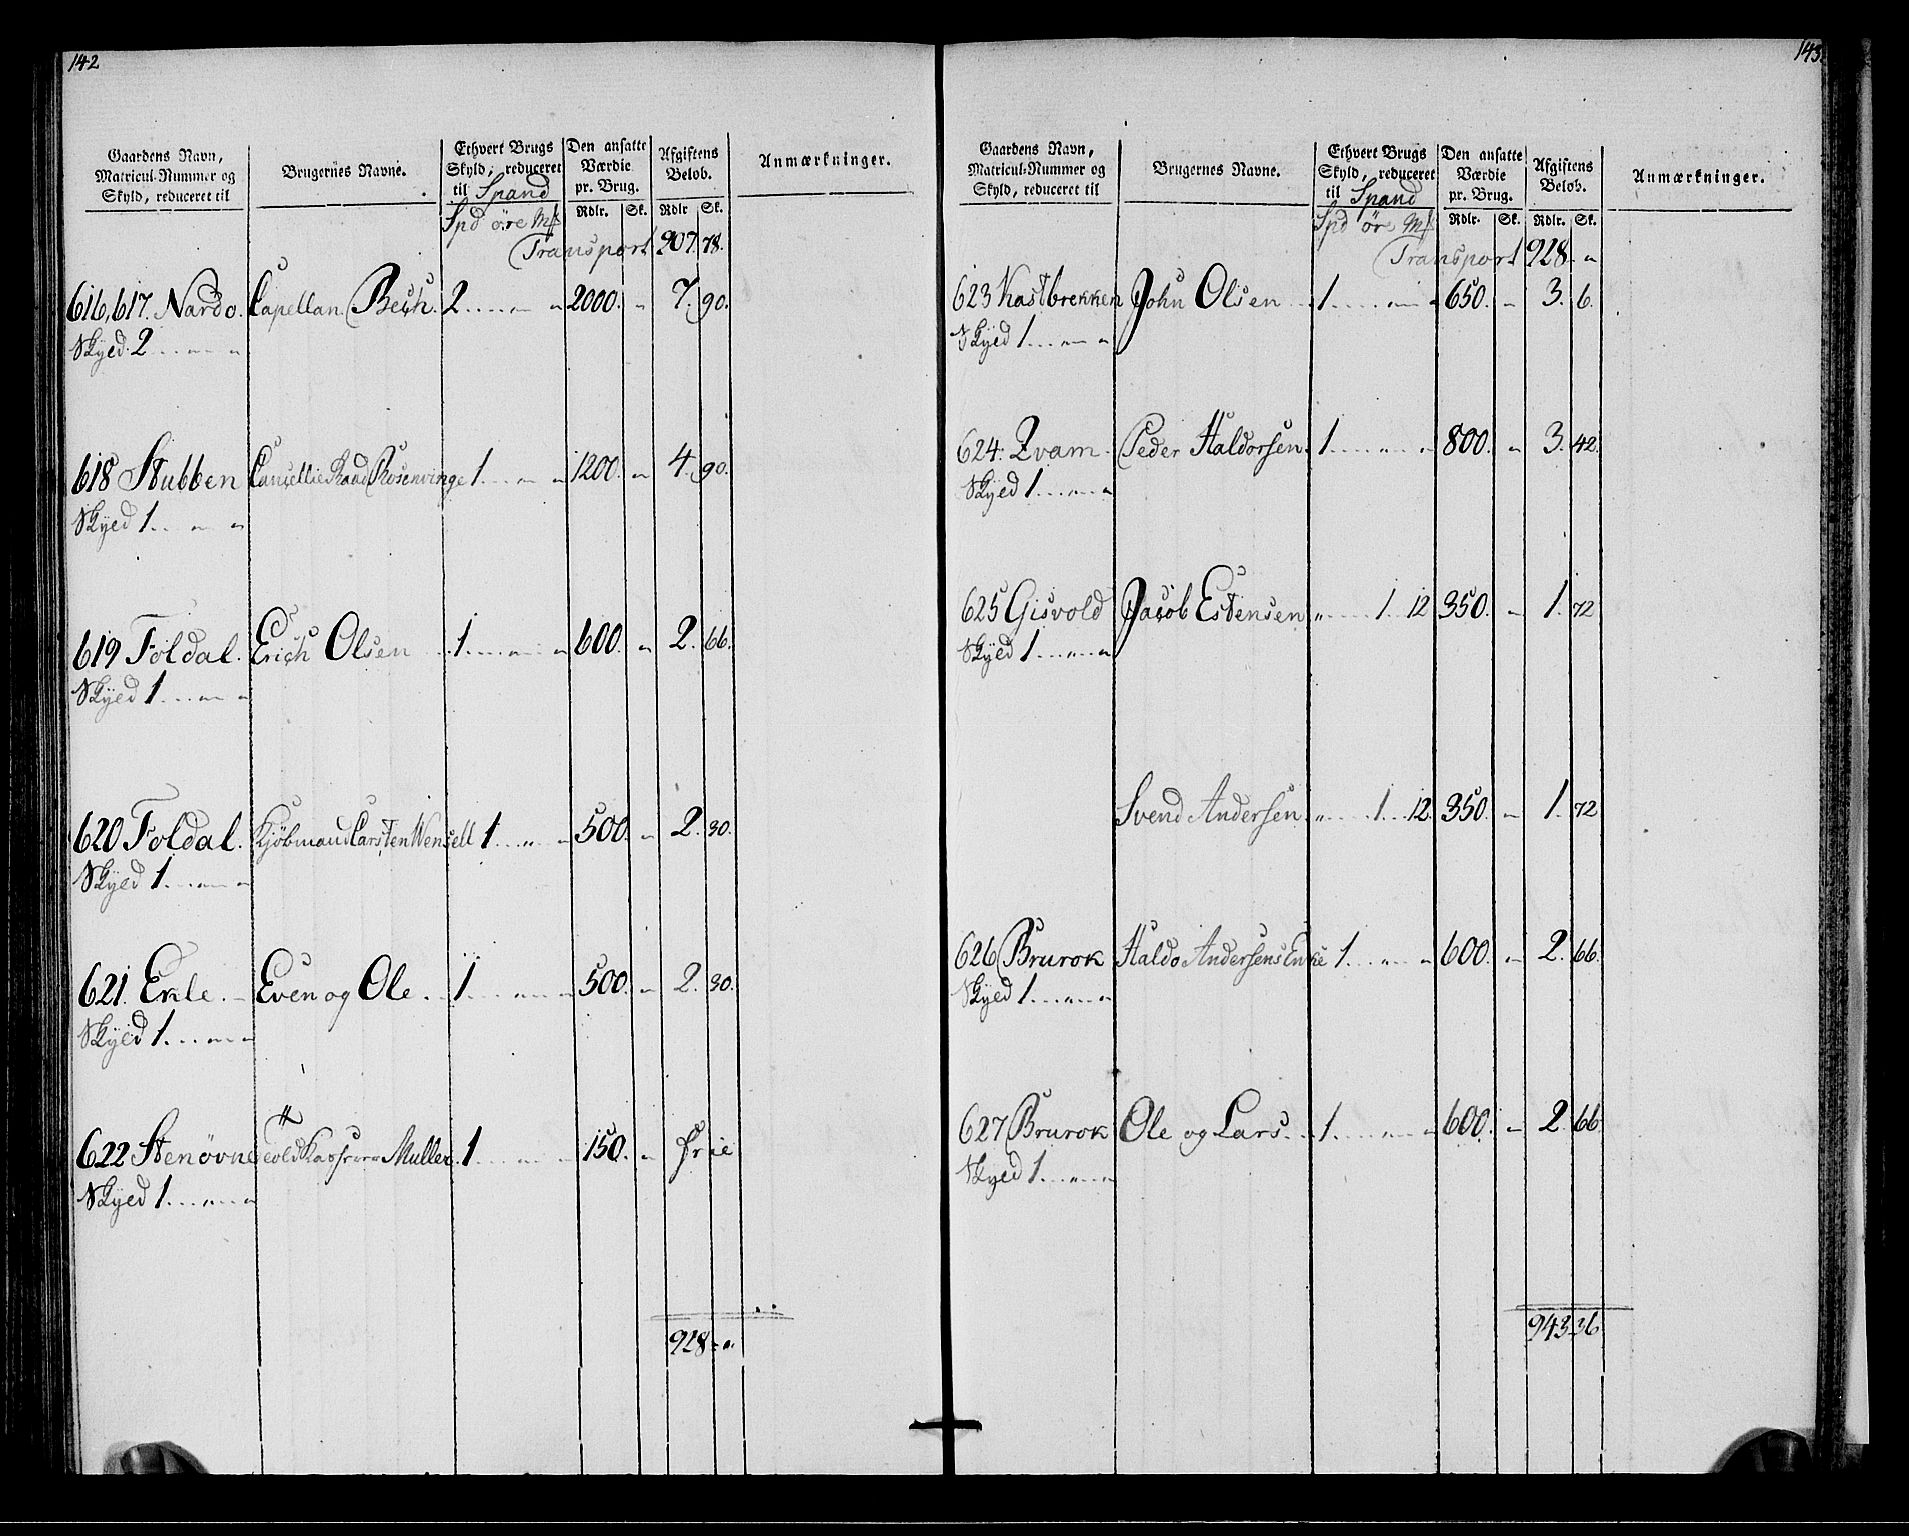 142
Gaardens Navn,
Matricul-Nummer og
Skyld, reduceret til
Brugernes Navne.
Ethvert Brugs
Skyld, reduceret
til Spand
Spd öre Mk
Den ansatte
Værdie
pr. Brug.
Rdlr. Sk.
Afgiftens
Beløb.
Rdlr Sk.
Anmærkninger.
Transport 907. 78.
616, 617. Nardo. Capellan Bech. 2....„ „ 2000. „ 7. 90.
Skyed. 2....„ „
618 Stubben Cancellie Raad Rosenvinge 1....„ „ 1200. „ 4. 90.
Skyed 1...„ „
619 Foldal. Erich Olsen 1....„ „ 600. „ 2. 66.
Skyed 1...„ „
620 Foldal. Kjöbmand Carsten Wensell 1...„ „ 500. „ 2. 30.
Skyed 1...„ „
621. Ekle. Even og Ole. 1....„ „ 500. „ 2. 30.
Skyed 1....„ „
622 Stenövne Muller. 1....„ „ 150. „ Frie
Skyed 1....„ „
928. „
143.
Gaardens Navn,
Matricul-Nummer og
Skyld, reduceret til
Brugernes Navne.
Ethvert Brugs
Skyld, reduceret
til Spand
Spd öre Mk
Den ansatte
Værdie
pr. Brug.
Rdlr. Sk.
Afgiftens
Beløb.
Rdlr. Sk.
Anmærkninger.
Transport 928. „
623 Kastbrekken John Olsen 1....„ „ 650. „ 3. 6.
Skyed 1...„ „
624. Qvam. Peder Haldorsen. 1....„ „ 800. „ 3. 42.
Skyed 1...„ „
625 Gisvold Jacob Estensen „....1. 12 350. „ 1. 72
Skyed 1...„ „
Svend Andersen. „....1...12. 350. „ 1. 72
626 Brurok Haldo Andersens Enke 1...„ „ 600. „ 2. 66.
Skyed 1...„ „
627 Brurok Ole og Lars. 1....„ „ 600. „ 2. 66.
Skyed 1...„ „
943. 36